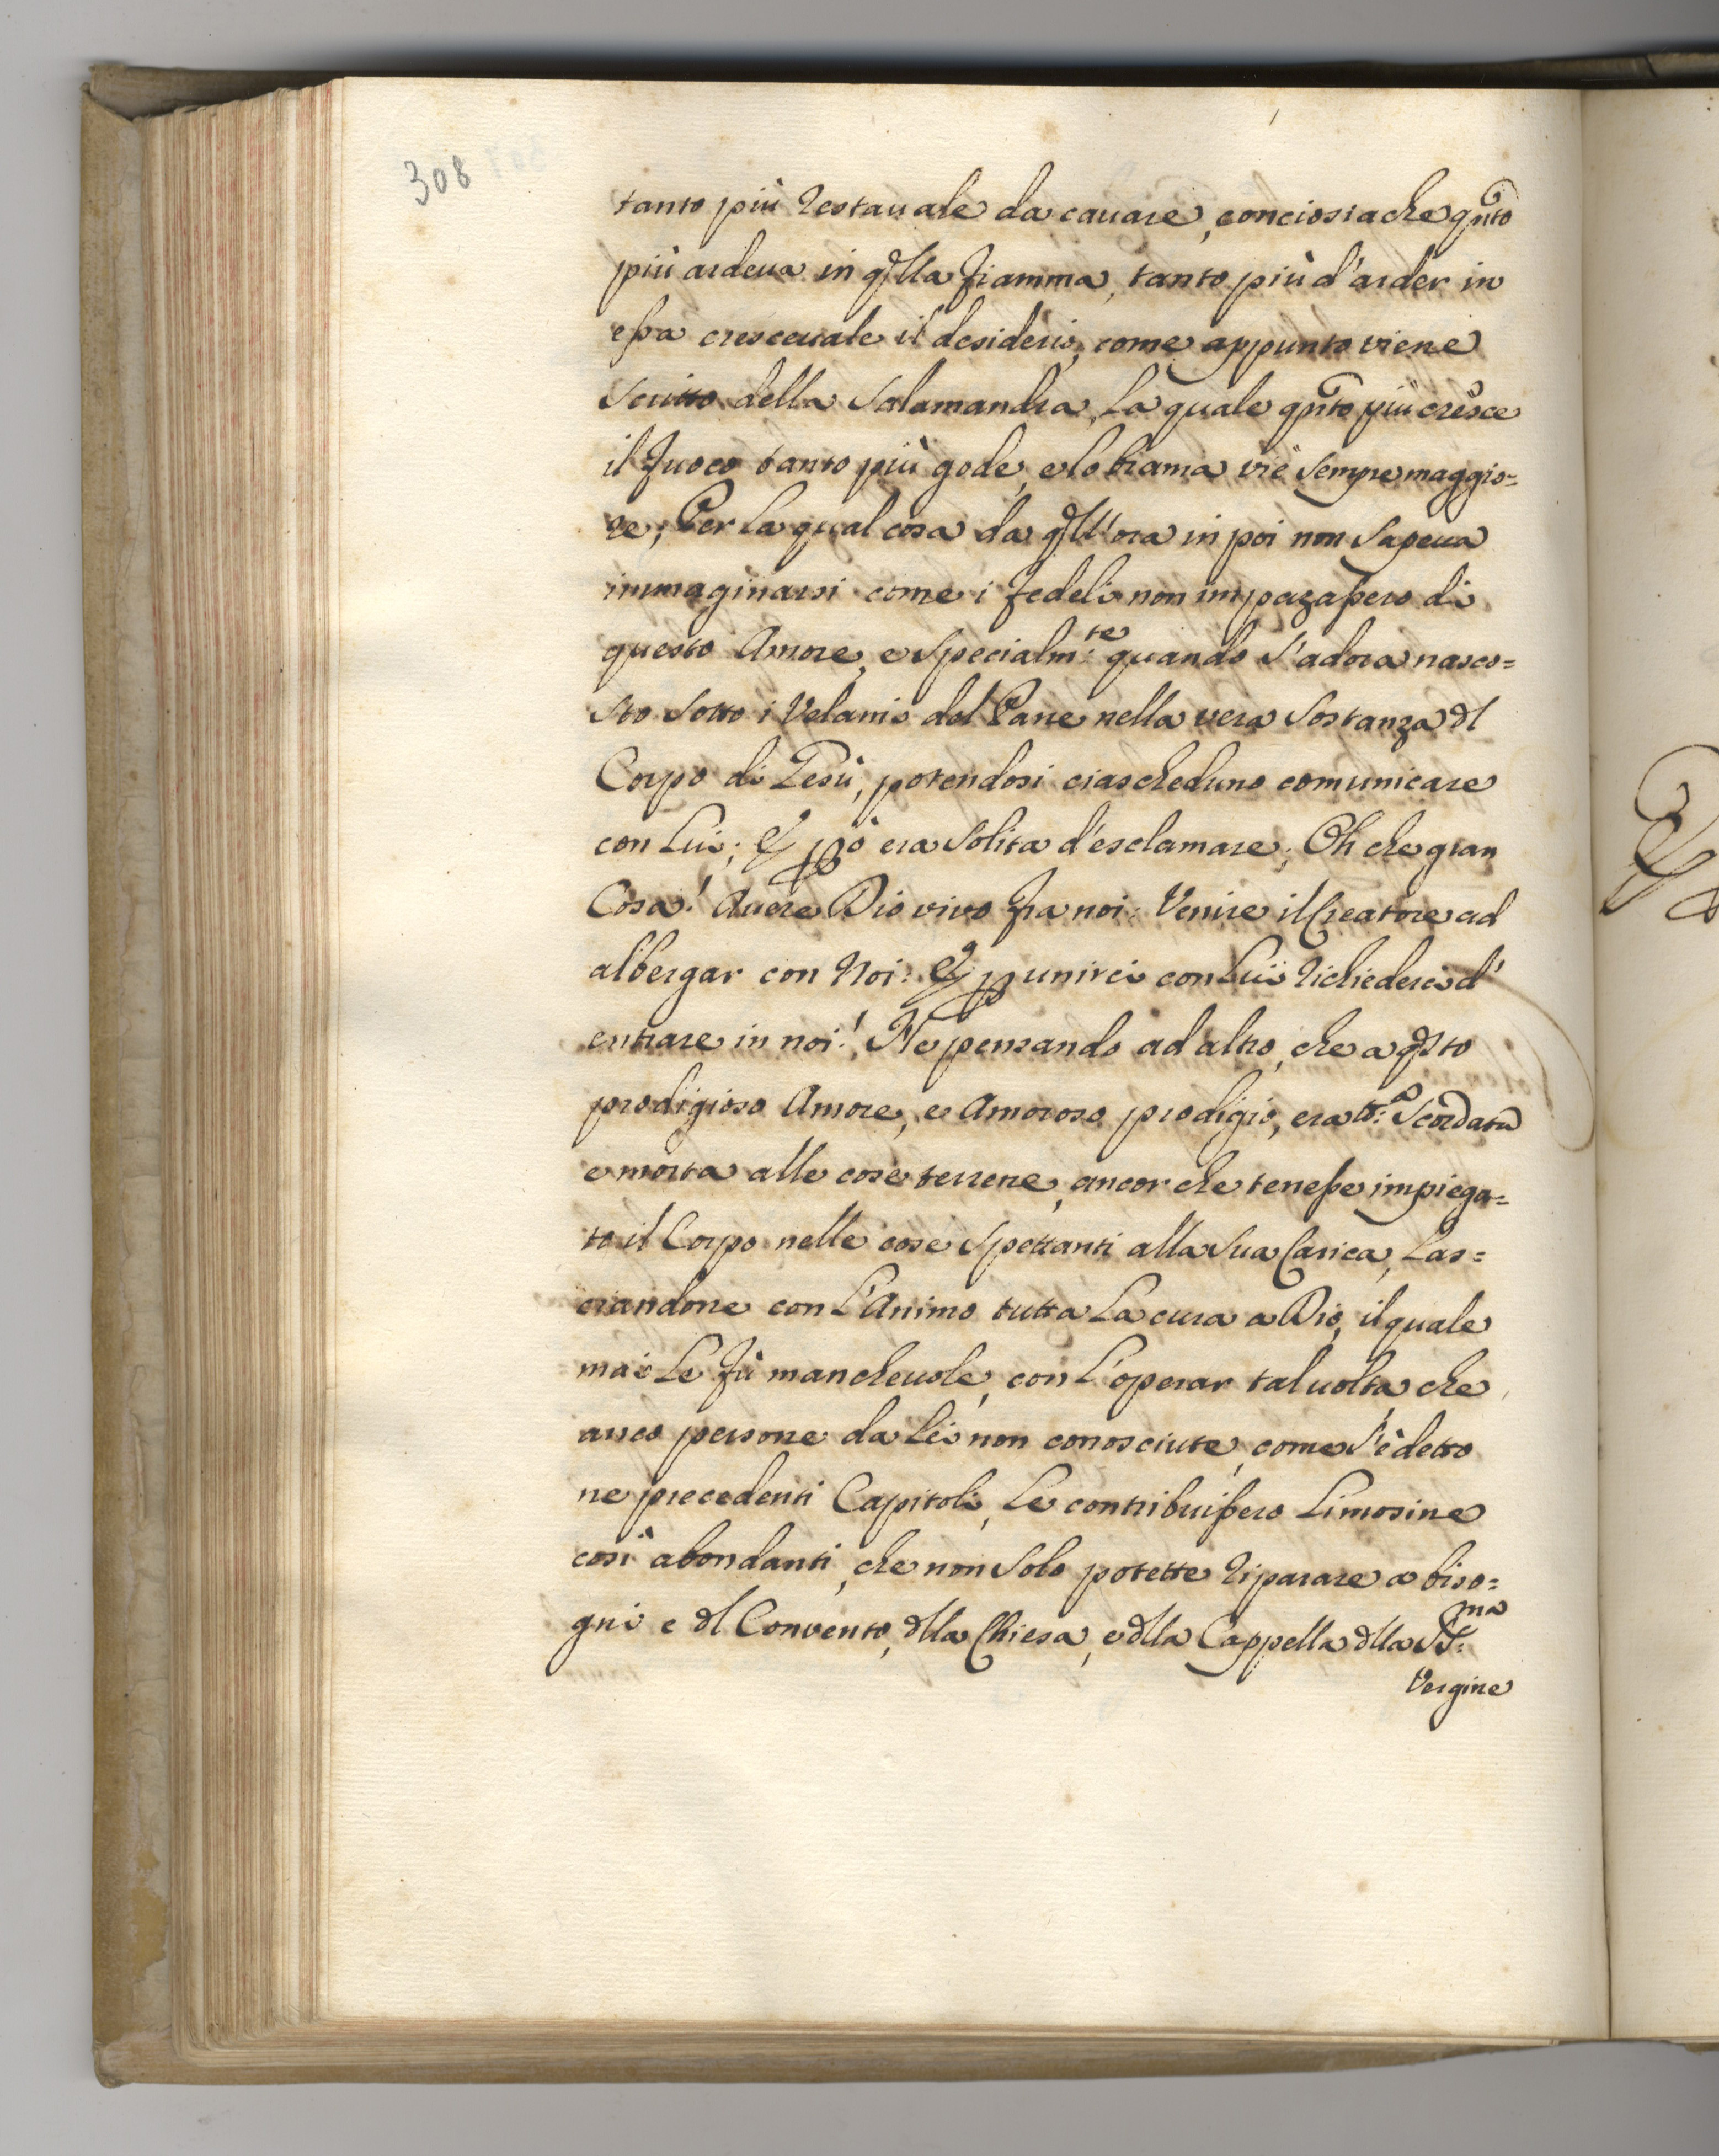 308
tanto più restauale da cauare, conciosiache qnto
più ardeua in qlla fiamma, tanto più d'arder in
essa cresceuale il desiderio, come appunto viene
scritto della Salamandra, La quale qnto più cresce
il fuoco tanto più gode, e lo brama viè sempre maggio=
re; Per la qual cosa da qll'ora in poi non sapeua
immaginarsi come i fedeli non impazassero di
questo Amore, e specialm:te quando s'adora nasco=
sto sotto i Velami del Pane nella vera sostanza dl
Corpo di Gesù, potendosi ciascheduno comunicare
con Lui; E pò era solita d'esclamare; Oh che gran
Cosa! Auere Dio vivo fra noi: Venire il Creatore ad
albergar con Noi: E p unirci con Lui richiederci d'
entrare in noi! Ne pensando ad altro, che a qsto
prodigioso Amore, e Amoroso prodigio, era tt:o scordata
e morta alle cose terrene, ancor che tenesse impiega=
to il Corpo nelle cose spettanti alla sua Carica, Las=
ciandone con L'Animo tutta La cura a Dio, il quale
mai Le fù mancheuole, con L'operar taluolta, che
anco persone da Lei non conosciute, come s'è detto
ne precedenti Capitoli, Le contribuissero Limosine
così abondanti, che non solo potette riparare a biso=
gni e dl Convento, dlla Chiesa, e dlla Cappella dlla SS:ma
Vergine